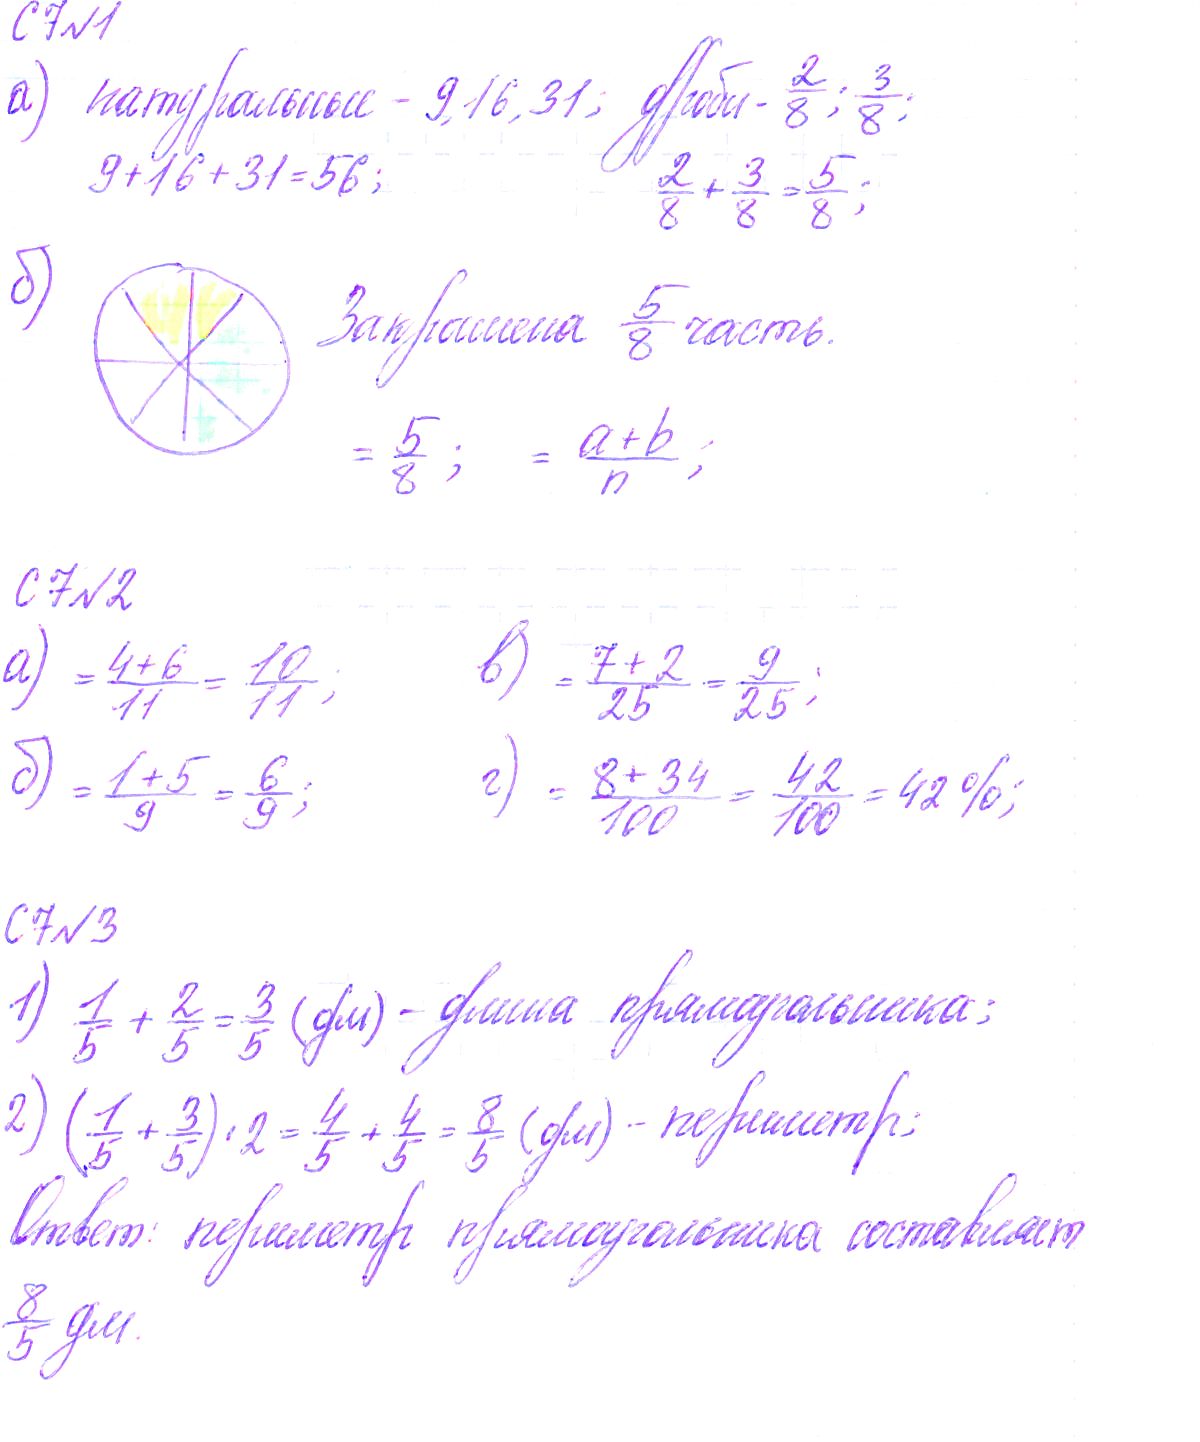 С7№1
а) натуральные - 9, 16, 31; дроби - 2/8; 3/8;
9+16+31=56; 2/8 + 3/8 = 5/8;
б) Закрашена 5/8 часть.
= 5/8; = (a+b)/n;
С7№2
а) = (4+6)/11 = 10/11; в) = (7+2)/25 = 9/25;
б) = (1+5)/9 = 6/9; г) = (8+34)/100 = 42/100 = 42%;
С7№3
1) 1/5 + 2/5 = 3/5 (дм) - длина прямоугольника;
2) (1/5 + 3/5) · 2 = 4/5 + 4/5 = 8/5 (дм) - периметр;
Ответ: периметр прямоугольника составляет
8/5 дм.